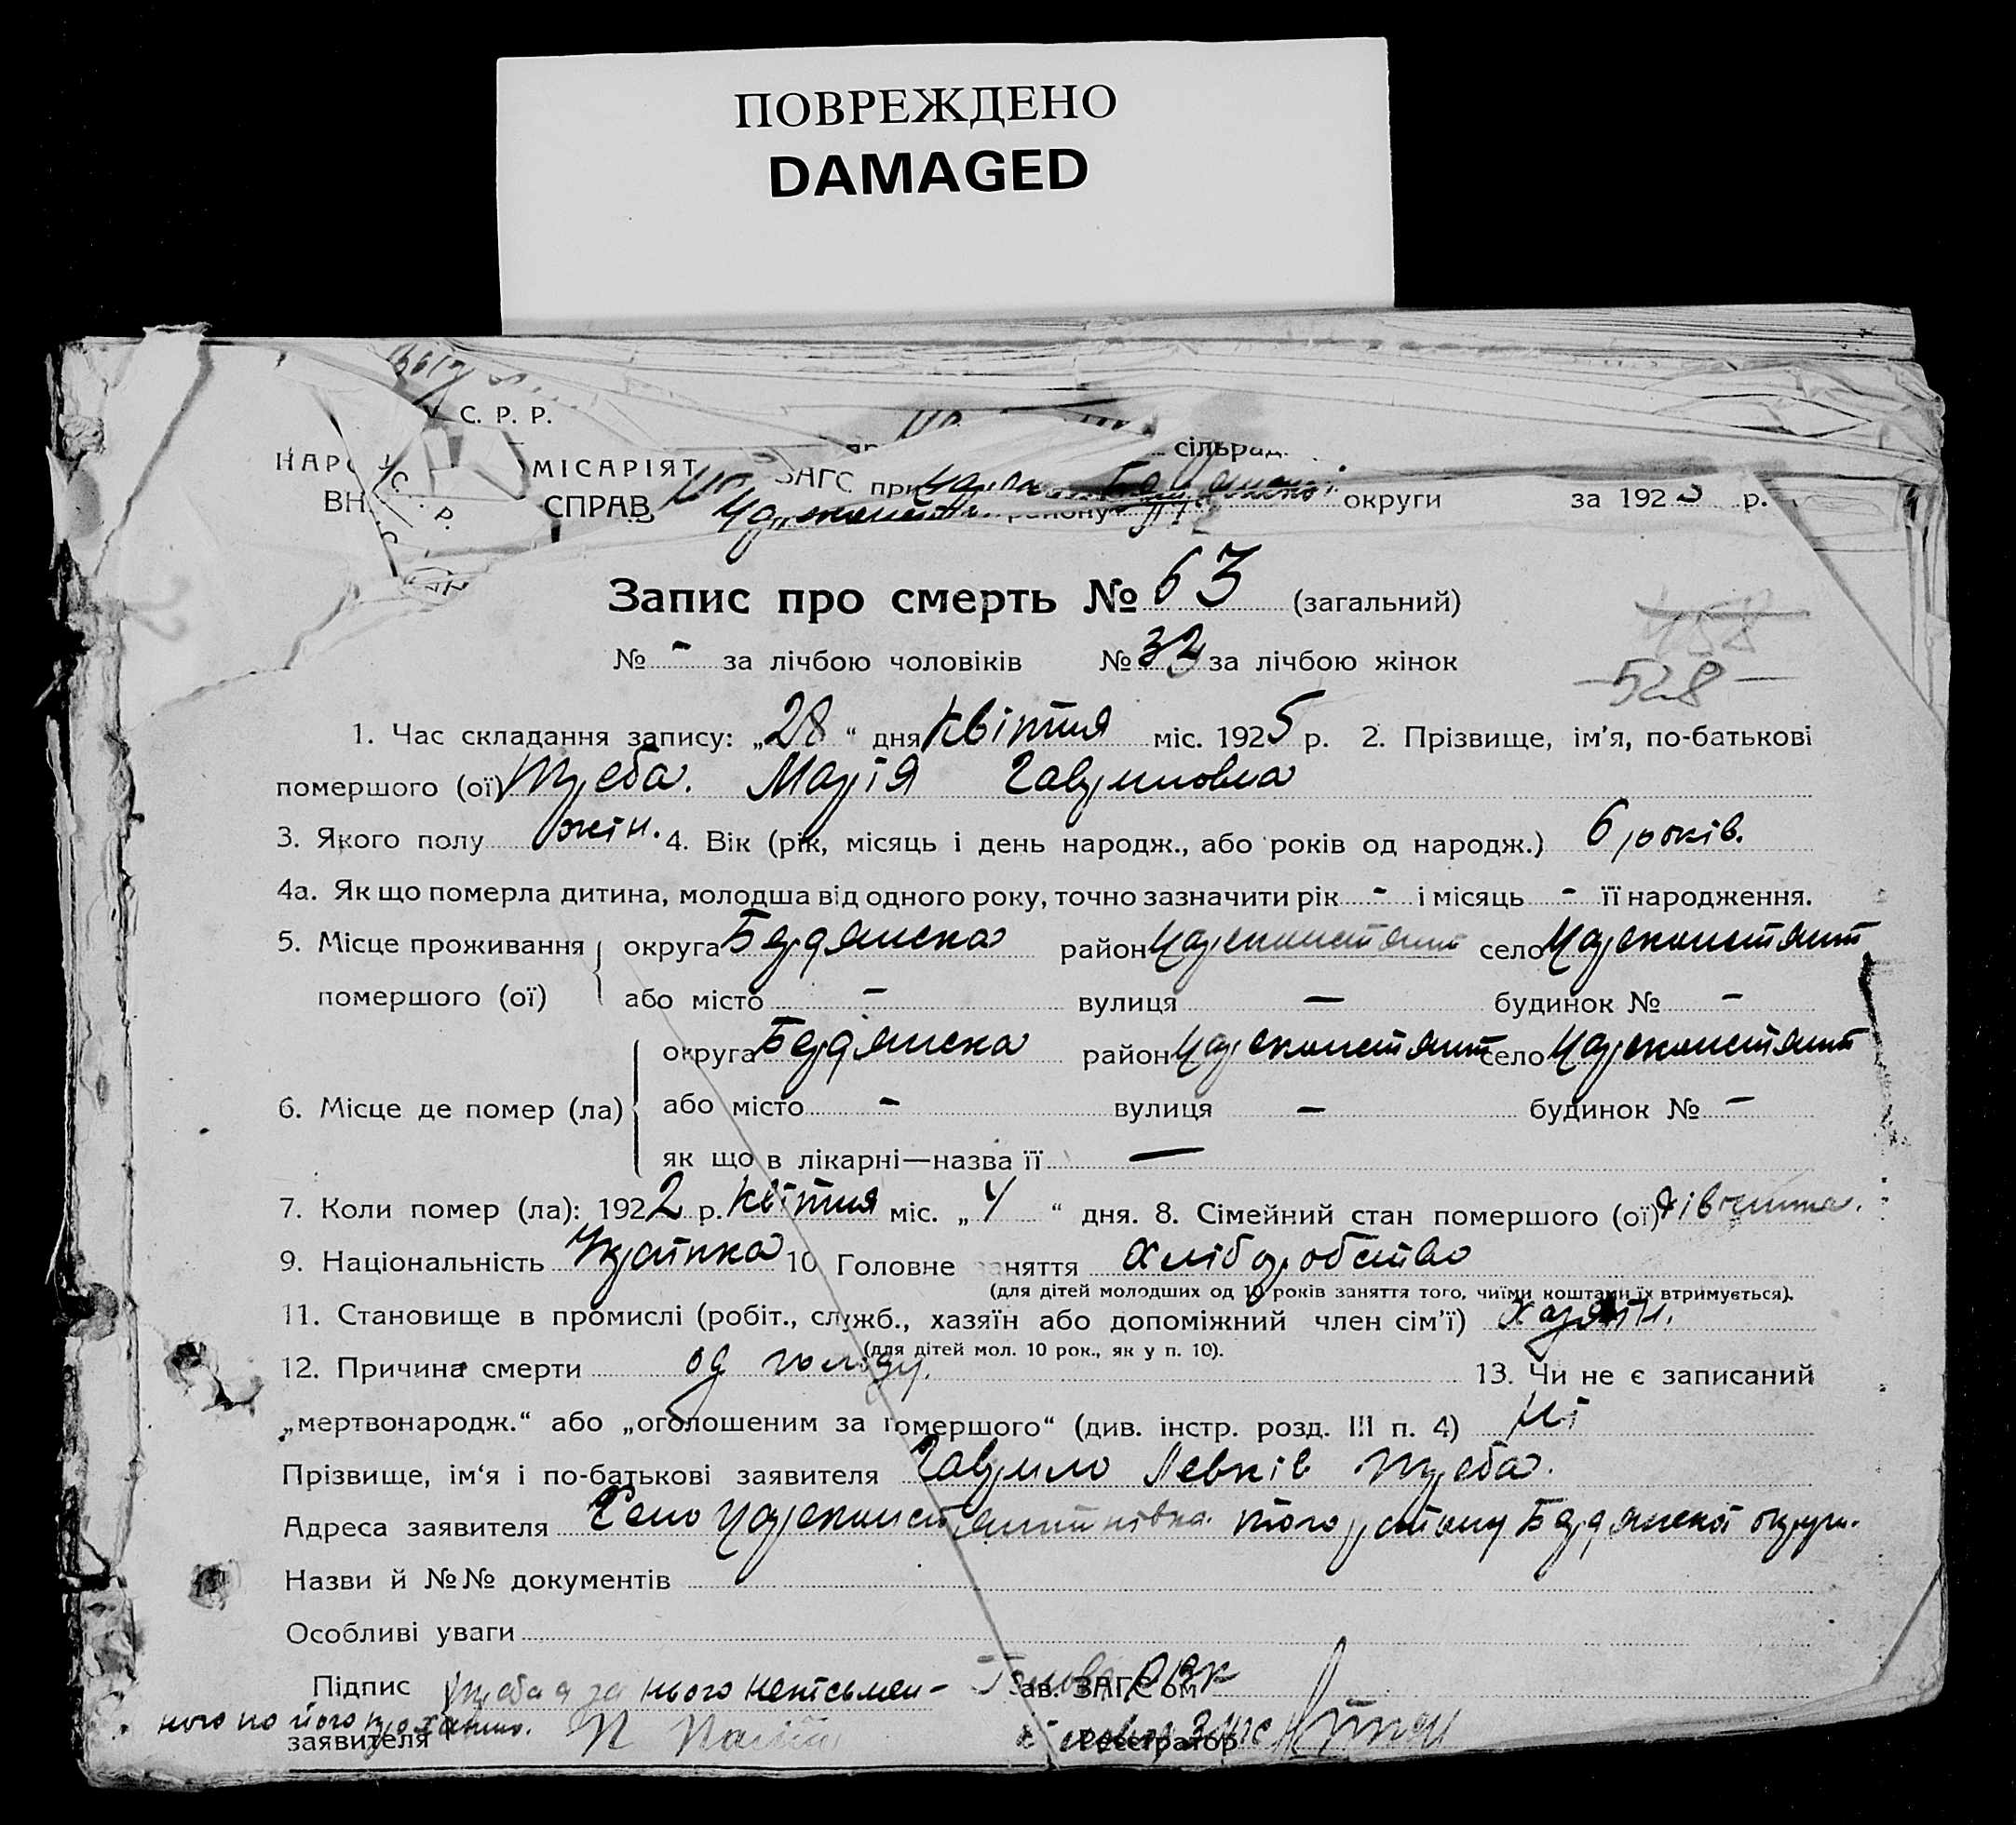 ПОВРЕЖДЕНО
DAMAGED
С. Р. Р.
МІСАРІЯТ ЗАГС при сільрад.
ВН СПРАВ району округи за 1925 р.
Запис про смерть № 63 (загальний)
458
№ - за лічбою чоловіків № 32 за лічбою жінок
-528-
1. Час складання запису: „28“ дня квітня міс. 1925 р. 2. Прізвище, ім'я, по-батькові
помершого (ої) Марія Гавриловна
3. Якого полу жін. 4. Вік (рік, місяць і день народж., або років од народж.) 6 років.
4а. Як що померла дитина, молодша від одного року, точно зазначити рік - і місяць - її народження.
5. Місце проживання округа Бердянска район Цареконстант село Цареконстант
помершого (ої) або місто - вулиця - будинок № -
округа Бердянска район Цареконстант село Цареконстант
6. Місце де помер (ла) або місто - вулиця - будинок № -
як що в лікарні—назва її —
7. Коли помер (ла): 1922 р. квітня міс. „4“ дня. 8. Сімейний стан помершого (ої) дівчина.
9. Національність Українка 10 Головне заняття хліборобство
(для дітей молодших од 10 років заняття того, чиїми коштами їх втримується).
11. Становище в промислі (робіт., служб., хазяїн або допоміжний член сім'ї) хазяїн.
(для дітей мол. 10 рок., як у п. 10).
12. Причина смерти од голоду. 13. Чи не є записаний
„мертвонародж.“ або „оголошеним за помершого“ (див. інстр. розд. III п. 4) ні
Прізвище, ім'я і по-батькові заявителя Гаврило Левків
Адреса заявителя Село Цареконстантинівка того району Бердянскої округи.
Назви й №№ документів
Особливі уваги
Підпис а за нього неписьмен- Голова РВК
Зав. ЗАГС'ом
ного по його проханню.
заявителя Реєстратор